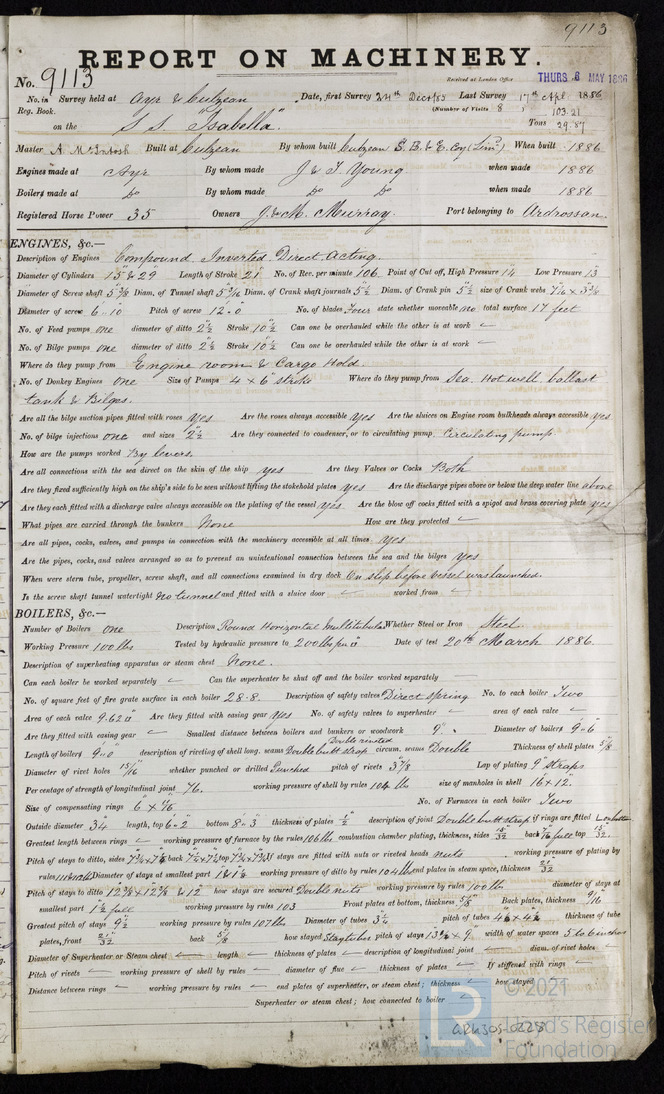 9113
REPORT ON MACHINERY.
No. 9113
Received at London Office THURS 6 MAY 1886
No. in Survey held at Ayr & Culzean Date, first Survey 24th Decr/85 Last Survey 17th Apl. 1886
Reg. Book. (Number of Visits 8)
on the S.S. "Isabella" Tons 103.21 29.87
Master A. McIntosh Built at Culzean By whom built Culzean S.B. & E. Coy (Lim) When built 1886
Engines made at Ayr By whom made J & T. Young when made 1886
Boilers made at Do By whom made Do Do when made 1886
Registered Horse Power 35 Owners J. & M. Murray. Port belonging to Ardrossan.
ENGINES, &c.—
Description of Engines Compound Inverted Direct Acting.
Diameter of Cylinders 15" & 29" Length of Stroke 21" No. of Rev. per minute 106 Point of Cut off, High Pressure 14" Low Pressure 13"
Diameter of Screw shaft 5 3/8 Diam. of Tunnel shaft 5 3/16 Diam. of Crank shaft journals 5 1/2 Diam. of Crank pin 5 1/2 size of Crank webs
Diameter of screw 6.10 Pitch of screw 12.0 No. of blades Four state whether moveable no total surface 17 feet
No. of Feed pumps one diameter of ditto 2 1/2 Stroke 10 1/2 Can one be overhauled while the other is at work
No. of Bilge pumps one diameter of ditto 2 1/2 Stroke 10 1/2 Can one be overhauled while the other is at work
Where do they pump from Engine room & Cargo Hold
No. of Donkey Engines One Size of Pumps 4 × 6" stroke Where do they pump from Sea, Hotwell, ballast
tank & Bilges.
Are all the bilge suction pipes fitted with roses yes Are the roses always accessible yes Are the sluices on Engine room bulkheads always accessible yes
No. of bilge injections one and sizes 2 1/2 Are they connected to condenser, or to circulating pump Circulating pump
How are the pumps worked By levers.
Are all connections with the sea direct on the skin of the ship yes Are they Valves or Cocks Both
Are they fixed sufficiently high on the ship's side to be seen without lifting the stokehold plates yes Are the discharge pipes above or below the deep water line above
Are they each fitted with a discharge valve always accessible on the plating of the vessel yes Are the blow off cocks fitted with a spigot and brass covering plate yes
What pipes are carried through the bunkers None How are they protected
Are all pipes, cocks, valves, and pumps in connection with the machinery accessible at all times yes
Are the pipes, cocks, and valves arranged so as to prevent an unintentional connection between the sea and the bilges yes
When were stern tube, propeller, screw shaft, and all connections examined in dry dock On slip before vessel was launched.
Is the screw shaft tunnel watertight no tunnel and fitted with a sluice door worked from
BOILERS, &c.—
Number of Boilers one Description Round Horizontal Multitubular Whether Steel or Iron Steel
Working Pressure 100 lbs Tested by hydraulic pressure to 200 lbs per □" Date of test 20th March 1886.
Description of superheating apparatus or steam chest None.
Can each boiler be worked separately Can the superheater be shut off and the boiler worked separately
No. of square feet of fire grate surface in each boiler 28.8. Description of safety valves Direct spring No. to each boiler Two
Area of each valve 9.62 □" Are they fitted with easing gear yes No. of safety valves to superheater area of each valve
Are they fitted with easing gear Smallest distance between boilers and bunkers or woodwork 9". Diameter of boilers 9-6
Length of boilers 9-0 description of riveting of shell long. seams Double riveted Double butt strap circum. seams Double Thickness of shell plates 5/8
Diameter of rivet holes 15/16 whether punched or drilled Punched pitch of rivets 3 7/8 Lap of plating 9" straps
Per centage of strength of longitudinal joint 76. working pressure of shell by rules 104 lbs size of manholes in shell 16 × 12.
Size of compensating rings No. of Furnaces in each boiler Two
Outside diameter 34" length, top 6-2 bottom 8-3 thickness of plates 1/2 description of joint Double butt strap if rings are fitted
Greatest length between rings working pressure of furnace by the rules 106 lbs combustion chamber plating, thickness, sides 15/32 back 7/16 full top 15/32
Pitch of stays to ditto, sides back top If stays are fitted with nuts or riveted heads nuts working pressure of plating by
rules Diameter of stays at smallest part working pressure of ditto by rules 104 lbs end plates in steam space, thickness 21/32
Pitch of stays to ditto how stays are secured Double nuts working pressure by rules 100 lbs diameter of stays at
smallest part 1 1/2 full working pressure by rules 103 Front plates at bottom, thickness 5/8 Back plates, thickness 9/16
Greatest pitch of stays 9 1/2 working pressure by rules 107 lbs Diameter of tubes 3 1/4 pitch of tubes thickness of tube
plates, front 21/32 back 5/8 how stayed Stay tubes pitch of stays width of water spaces 5 to 6 inches
Diameter of Superheater or Steam chest length thickness of plates description of longitudinal joint diam. of rivet holes
Pitch of rivets working pressure of shell by rules diameter of flue thickness of plates If stiffened with rings
Distance between rings working pressure by rules end plates of superheater, or steam chest; thickness how stayed
Superheater or steam chest; how connected to boiler
© 2021
LR Lloyd's Register
Foundation